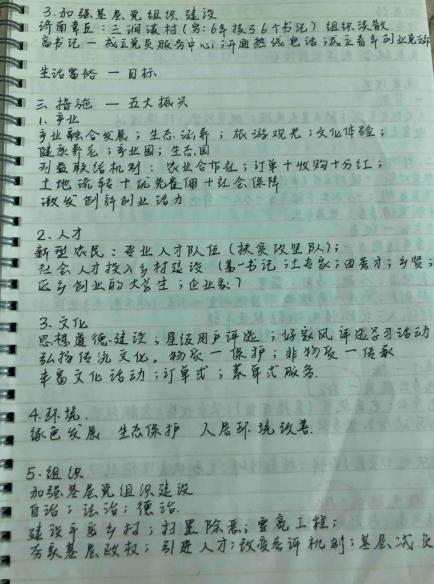 3.加强基层党组织建设
济南章丘：三涧溪村（穷：6年换了6个书记）组织涣散
高书记一成立党员服务中心；开通热线电话；成立青年创业
生活富裕 — 目标
三 措施 — 五大振兴
1.产业
产业融合发展；生态涵养；旅游观光；文化体验；
健康养老；产业园；生态园
利益联结机制：农业合作社；订单+收购+分红；
土地流转+优先雇佣+社会保障
激发创新创业活力
2.人才
新型农民：专业人才队伍（扶贫攻坚队）；
社会人才投入乡村建设（第一书记；专家；田秀才；乡贤；
返乡创业的大学生；企业家）
3.文化
思想道德建设；星级用户评选；好家风评选学习活动
弘扬传统文化。物质—保护；非物质—传承
丰富文化活动；订单式；菜单式服务.
4.环境.
绿色发展 生态保护 人居环境改善.
5.组织
加强基层党组织建设
自治；法治；德治.
建设平安乡村；扫黑除恶；雪亮工程；
夯实基层政权；引进人才；改变考评机制；基层减负